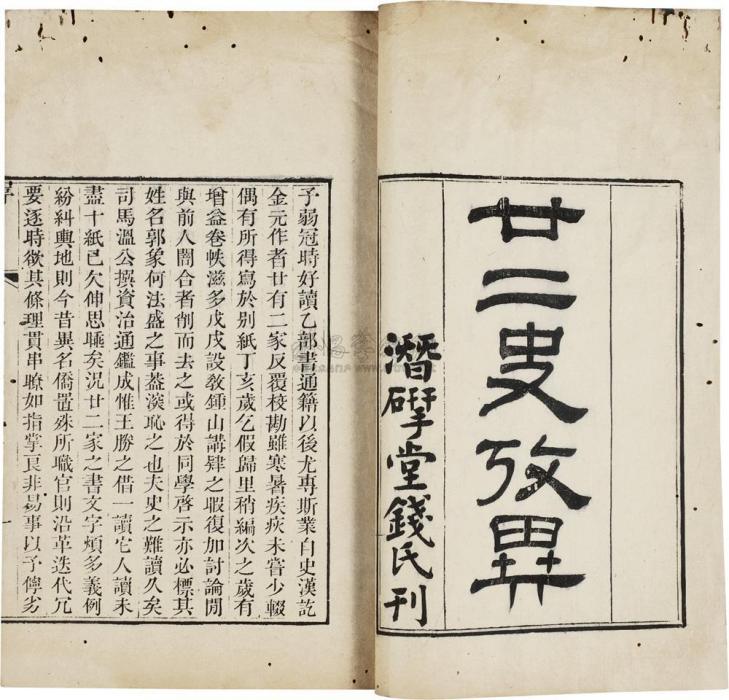 廿二史攷異
潛硏堂錢氏刊
予弱冠時好讀乙部書通籍以後尤專斯業自史漢訖
金元作者廿有二家反覆校勘雖寒暑疾疢未嘗少輟
偶有所得寫於别紙丁亥歲乞假歸里稍編次之歲有
增益卷帙滋多戊戌設敎鍾山講肆之暇復加討論閒
與前人闇合者削而去之或得於同學啓示亦必標其
姓名郭象何法盛之事葢深恥之也夫史之難讀久矣
司馬溫公撰資治通鑑成惟王勝之借一讀它人讀未
盡十紙已欠伸思睡矣況廿二家之書文字煩多義例
紛糾輿地則今昔異名僑置殊所職官則沿革迭代冗
要逐時欲其條理貫串瞭如指掌良非易事以予儜劣